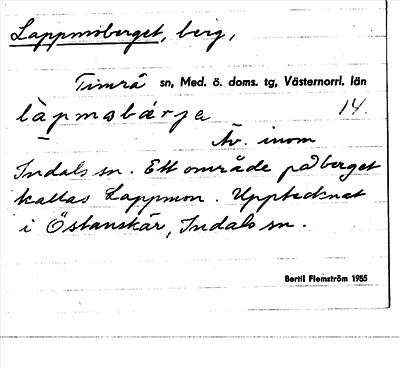 Lappmoberget, berg,
Timrå sn, Med. ö. doms. tg, Västernorrl. län
låpmɷbár̨ja 14.
Äv. inom
Indals sn. Ett område på berget
kallas Lappmon. Upptecknat
i Östanskär, Indals sn.
Bertil Flemström 1955